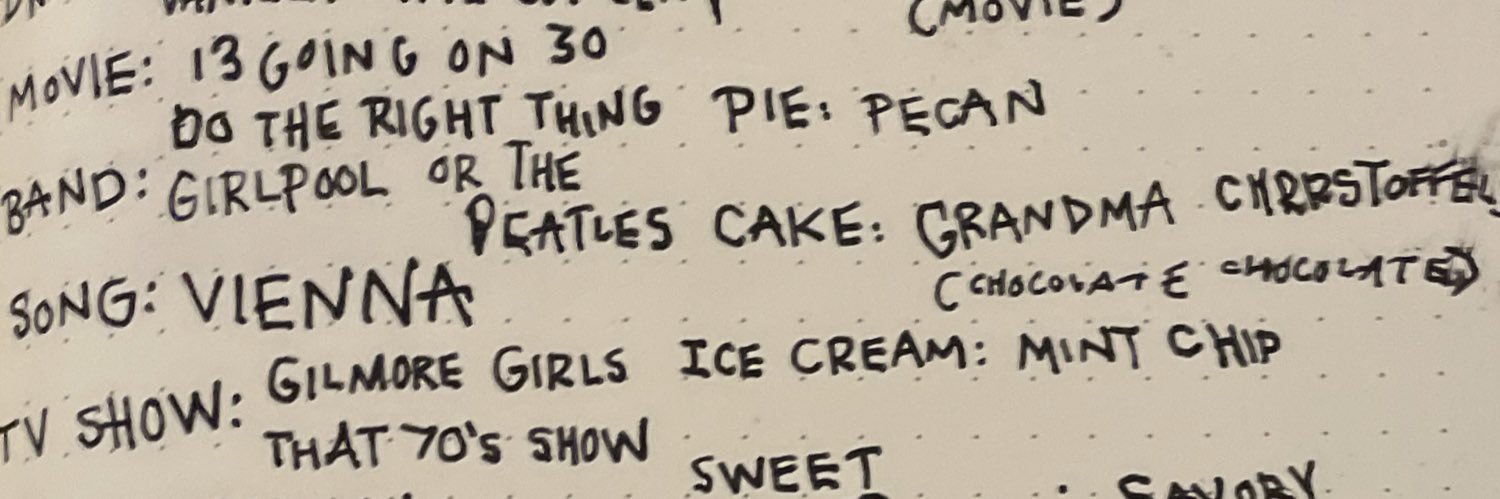 (MOVIE)
MOVIE: 13 GOING ON 30
DO THE RIGHT THING
PIE: PECAN
BAND: GIRLPOOL OR THE
BEATLES
CAKE: GRANDMA CHRRSTOFFEL
(CHOCOLATE CHOCOLATE)
SONG: VIENNA
TV SHOW: GILMORE GIRLS
THAT 70'S SHOW
ICE CREAM: MINT CHIP
SWEET
SAVORY